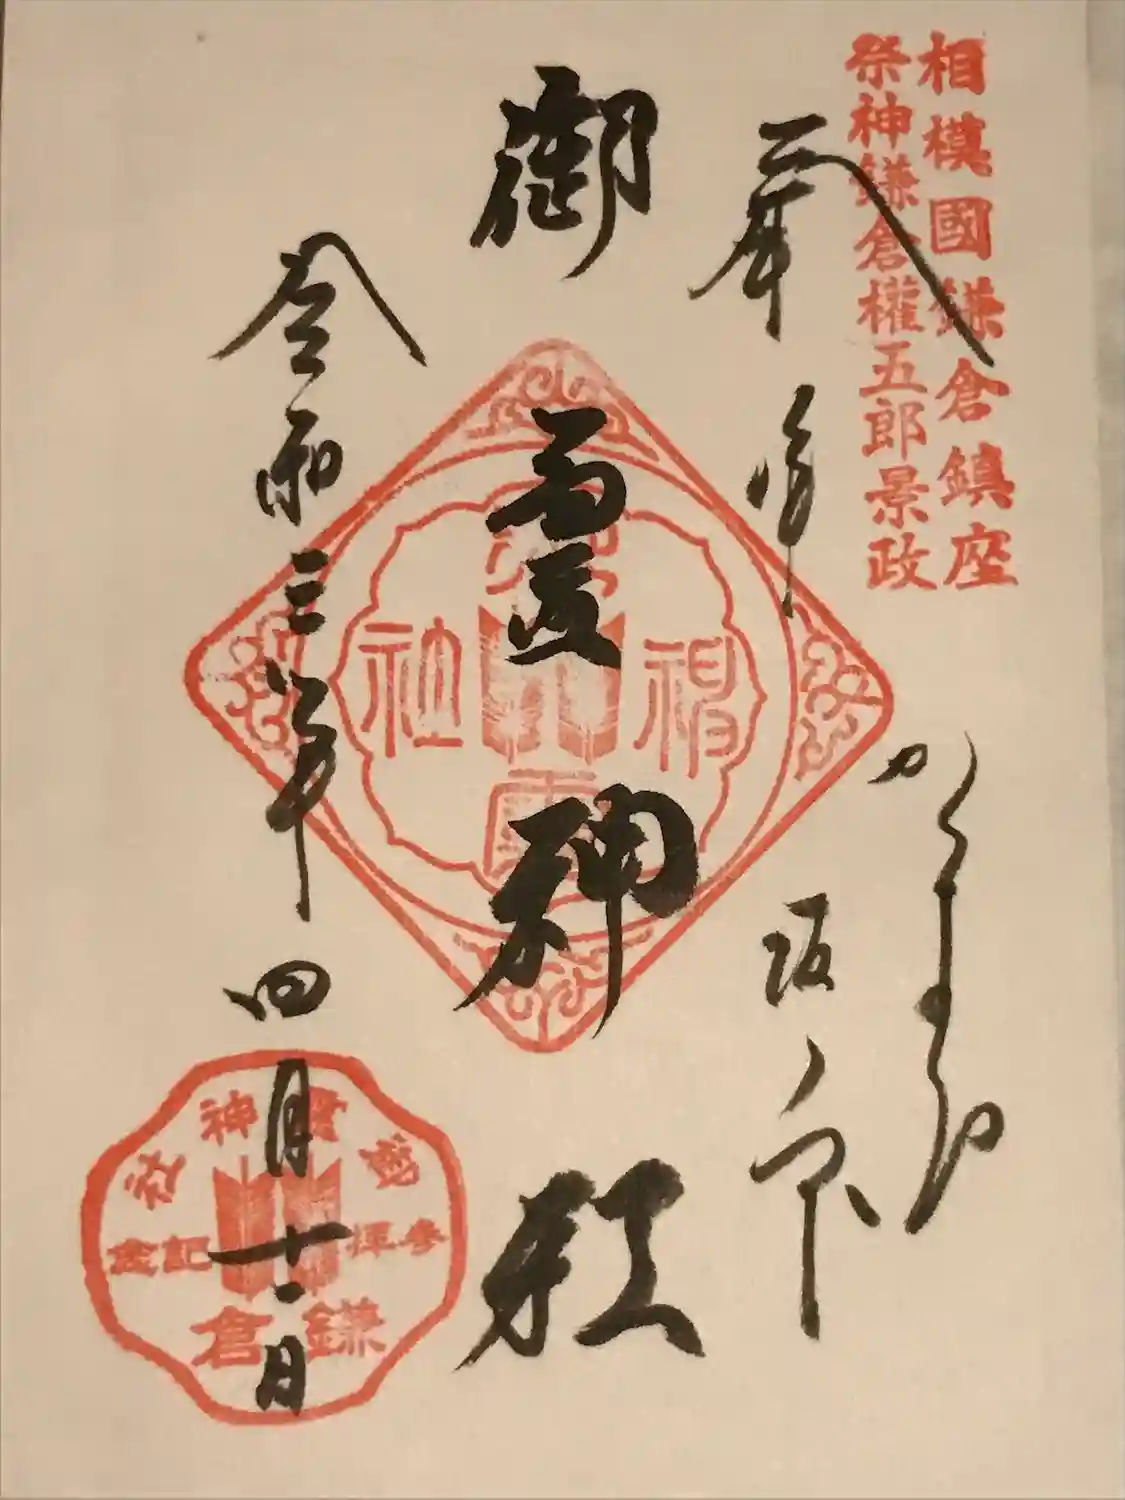 相模國鎌倉鎮座
祭神鎌倉權五郎景政
奉拝
かまくら
坂ノ下
御霊神社
令和三年四月十一日
御霊神社
御霊神社
参拝記念
鎌倉